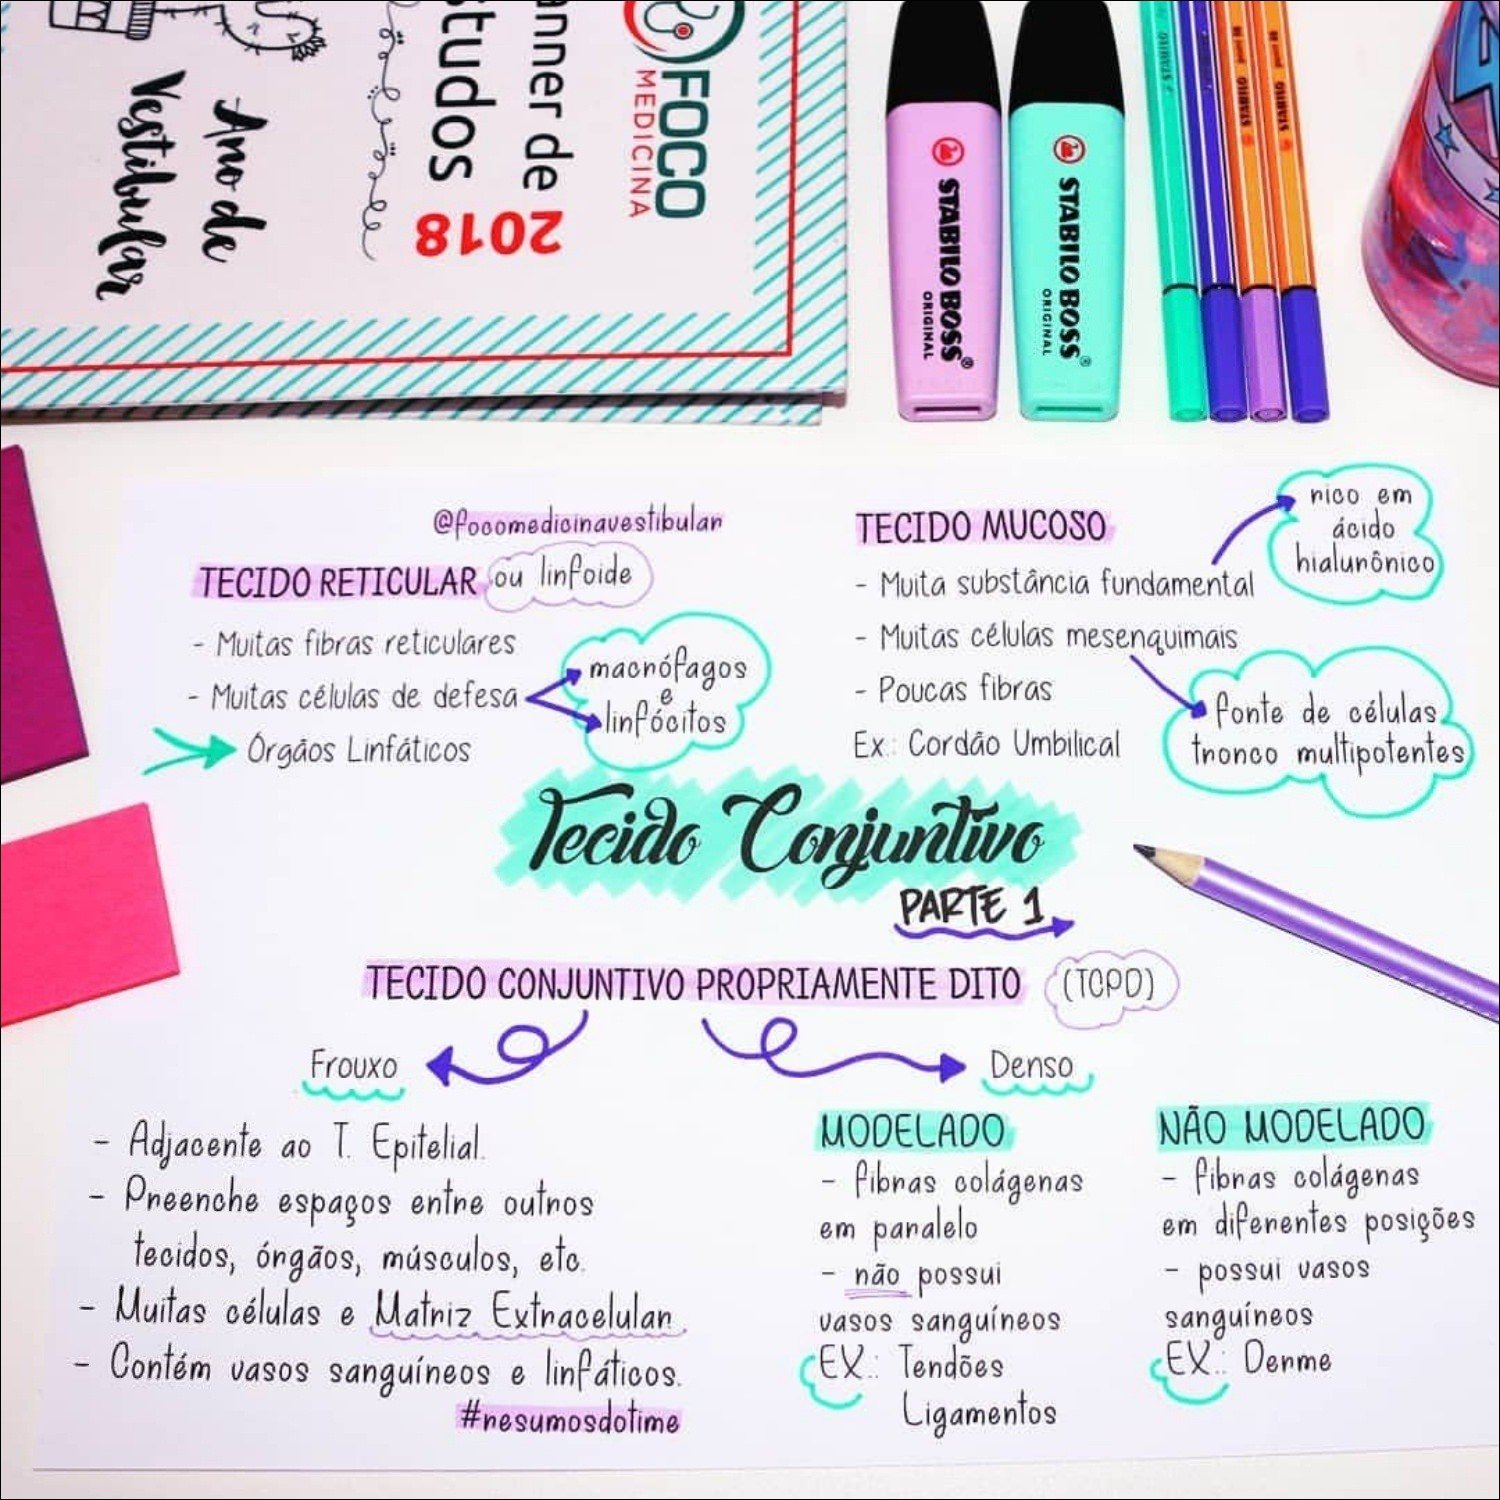 FOCO
MEDICINA
anner de
studos
2018
Ano de
Vestibular
STABILO BOSS®
ORIGINAL
STABILO BOSS®
ORIGINAL
STABILO
STABILO
STABILO
@focomedicinavestibular
TECIDO RETICULAR ou linfoide
- Muitas fibras reticulares
- Muitas células de defesa
macrófagos
e
linfócitos
Órgãos Linfáticos
TECIDO MUCOSO
rico em
ácido
hialurônico
- Muita substância fundamental
- Muitas células mesenquimais
- Poucas fibras
fonte de células
tronco multipotentes
Ex.: Cordão Umbilical
Tecido Conjuntivo
PARTE 1
TECIDO CONJUNTIVO PROPRIAMENTE DITO (TCPD)
Frouxo
- Adjacente ao T. Epitelial.
- Preenche espaços entre outros
tecidos, órgãos, músculos, etc.
- Muitas células e Matriz Extracelular.
- Contém vasos sanguíneos e linfáticos.
#resumosdotime
Denso
MODELADO
- fibras colágenas
em paralelo
- não possui
vasos sanguíneos
EX.: Tendões
Ligamentos
NÃO MODELADO
- fibras colágenas
em diferentes posições
- possui vasos
sanguíneos
EX.: Derme